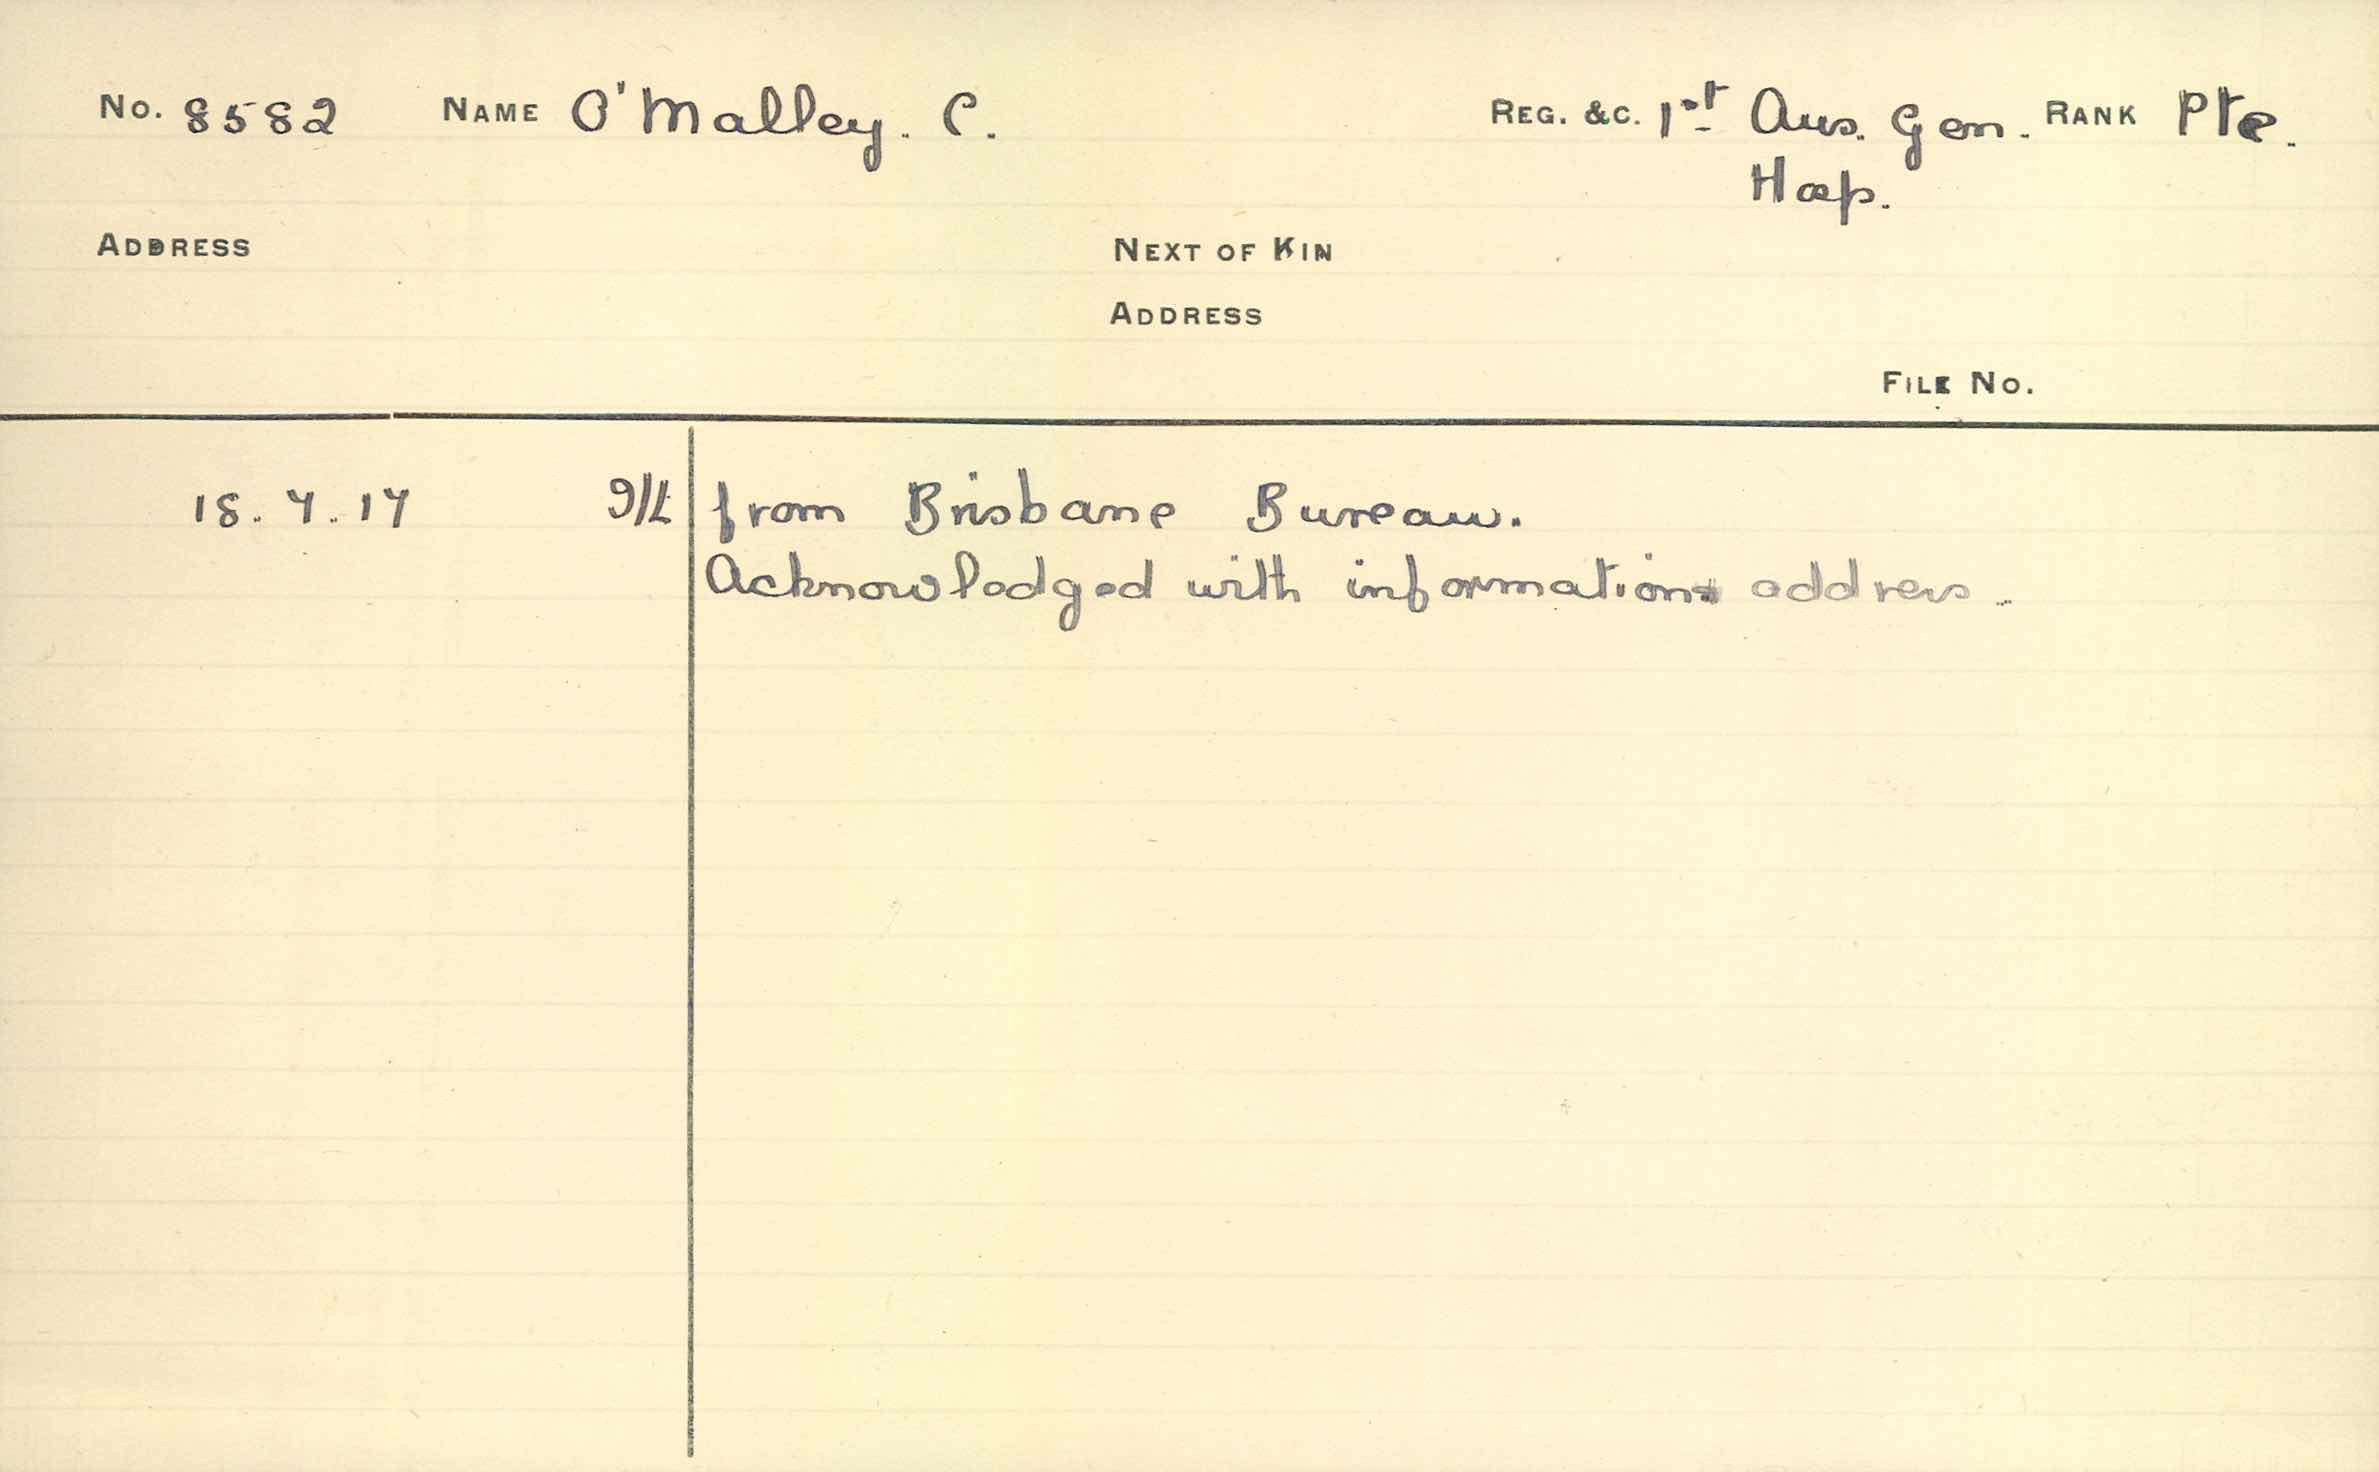 No. 8582 NAME O'Malley. C. REG. &C. 1st Aus. Gen. RANK Pte.
Hosp.
ADDRESS NEXT OF KIN
ADDRESS
FILE No.
18. 7. 17 I/L from Brisbane Bureau.
Acknowledged with information address.